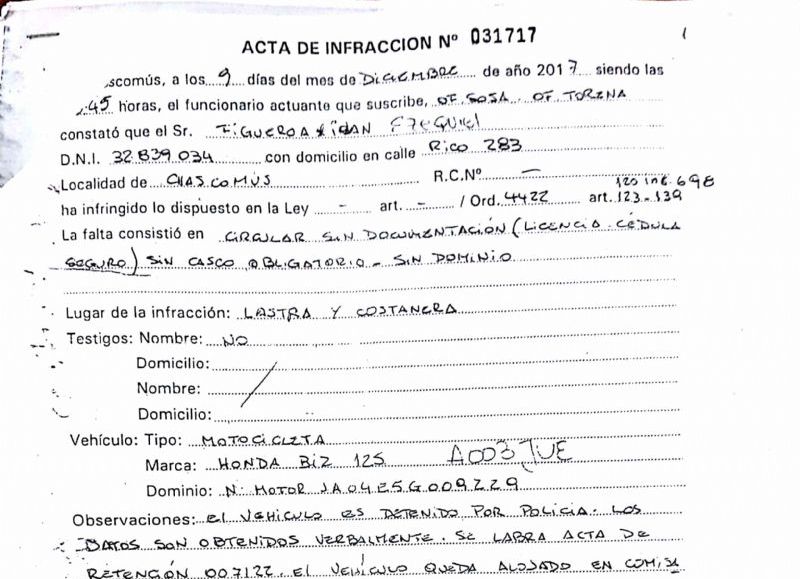 ACTA DE INFRACCION Nº 031717
scomús, a los 9 días del mes de DICIEMBRE de año 2017 siendo las
45 horas, el funcionario actuante que suscribe, OF. SOSA. OF TORENA
constató que el Sr. FIGUEROA IDAN EZEQUIEL
D.N.I. 32.839.034 con domicilio en calle RICO 283
Localidad de CHASCOMÚS R.C.Nº —
120 inc. 698
ha infringido lo dispuesto en la Ley - art. - / Ord. 4422 art. 123-139
La falta consistió en CIRCULAR SIN DOCUMENTACIÓN (LICENCIA - CÉDULA
SEGURO) SIN CASCO OBLIGATORIO - SIN DOMINIO
Lugar de la infracción: LASTRA Y COSTANERA
Testigos: Nombre: NO
Domicilio:
Nombre:
Domicilio:
Vehículo: Tipo: MOTOCICLETA
Marca: HONDA BIZ 125 A003JUE
Dominio: Nº MOTOR JA04E5G009229
Observaciones: EL VEHICULO ES DETENIDO POR POLICIA. LOS
DATOS SON OBTENIDOS VERBALMENTE. SE LABRA ACTA DE
RETENCIÓN 007122. EL VEHÍCULO QUEDA ALOJADO EN COMISA